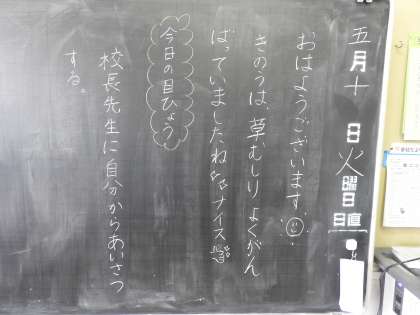 五月十日火曜日
日直
おはようございます
きのうは、草むしりよくがん
ばっていましたねナイス
今日の目ひょう
校長先生に自分からあいさつ
する。